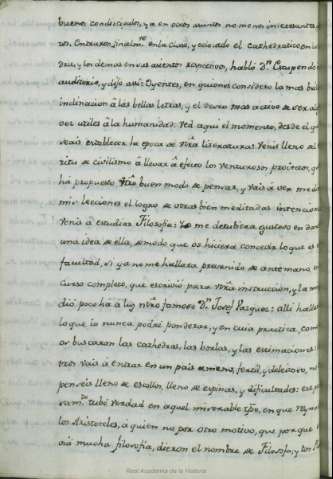 buenos condiscipulos, ya en otros asuntos no menos interesantes
Entraron finalm.te en la clase, y colocado el cathedratico en la
y los demas en sus asientos respectivos, habló D.n
auditorio, y dijo assi: Oyentes, en quienes considero la mas
inclinacion à las bellas letras, y el deseo mas activo de
utiles à la humanidad. Ved aqui el momento, desde el q.e
veais establecer la epoca de vtra literatura. Venis lleno
ritu de civilismo à llevar à efecto los venturosos proiectos, q.e
hà propuesto vtro buen modo de pensar, y vais à
mis lecciones el logro de vtras bien meditadas intenciones
Venis à estudiar Filosofia: Yo me detubiera gustoso en
una idea de ella, de modo que os hiciera conocer lo que es
facultad, si ya no me hallara prevenido de antemano
Curso completo, que escribió para vtra instruccion, y la
dió poco hà à luz ntro famoso D.n Josef Vazquez: alli
lo que io nunca podré ponderar, y en cuia practica,
os buscaran las cathedras, las borlas, y las estimaciones:
tros vais à entrar en un pais ameno, fertil, y delicioso, no
penseis lleno de escollos, lleno de espinas, y dificultades:
tubo verdad en aquel miserable tpo, en que
los Aristoteles, à quien no por otro motivo, que porque
mucha filosofia, dieron el nombre de Filosofo, y los
Real Academia de la Historia